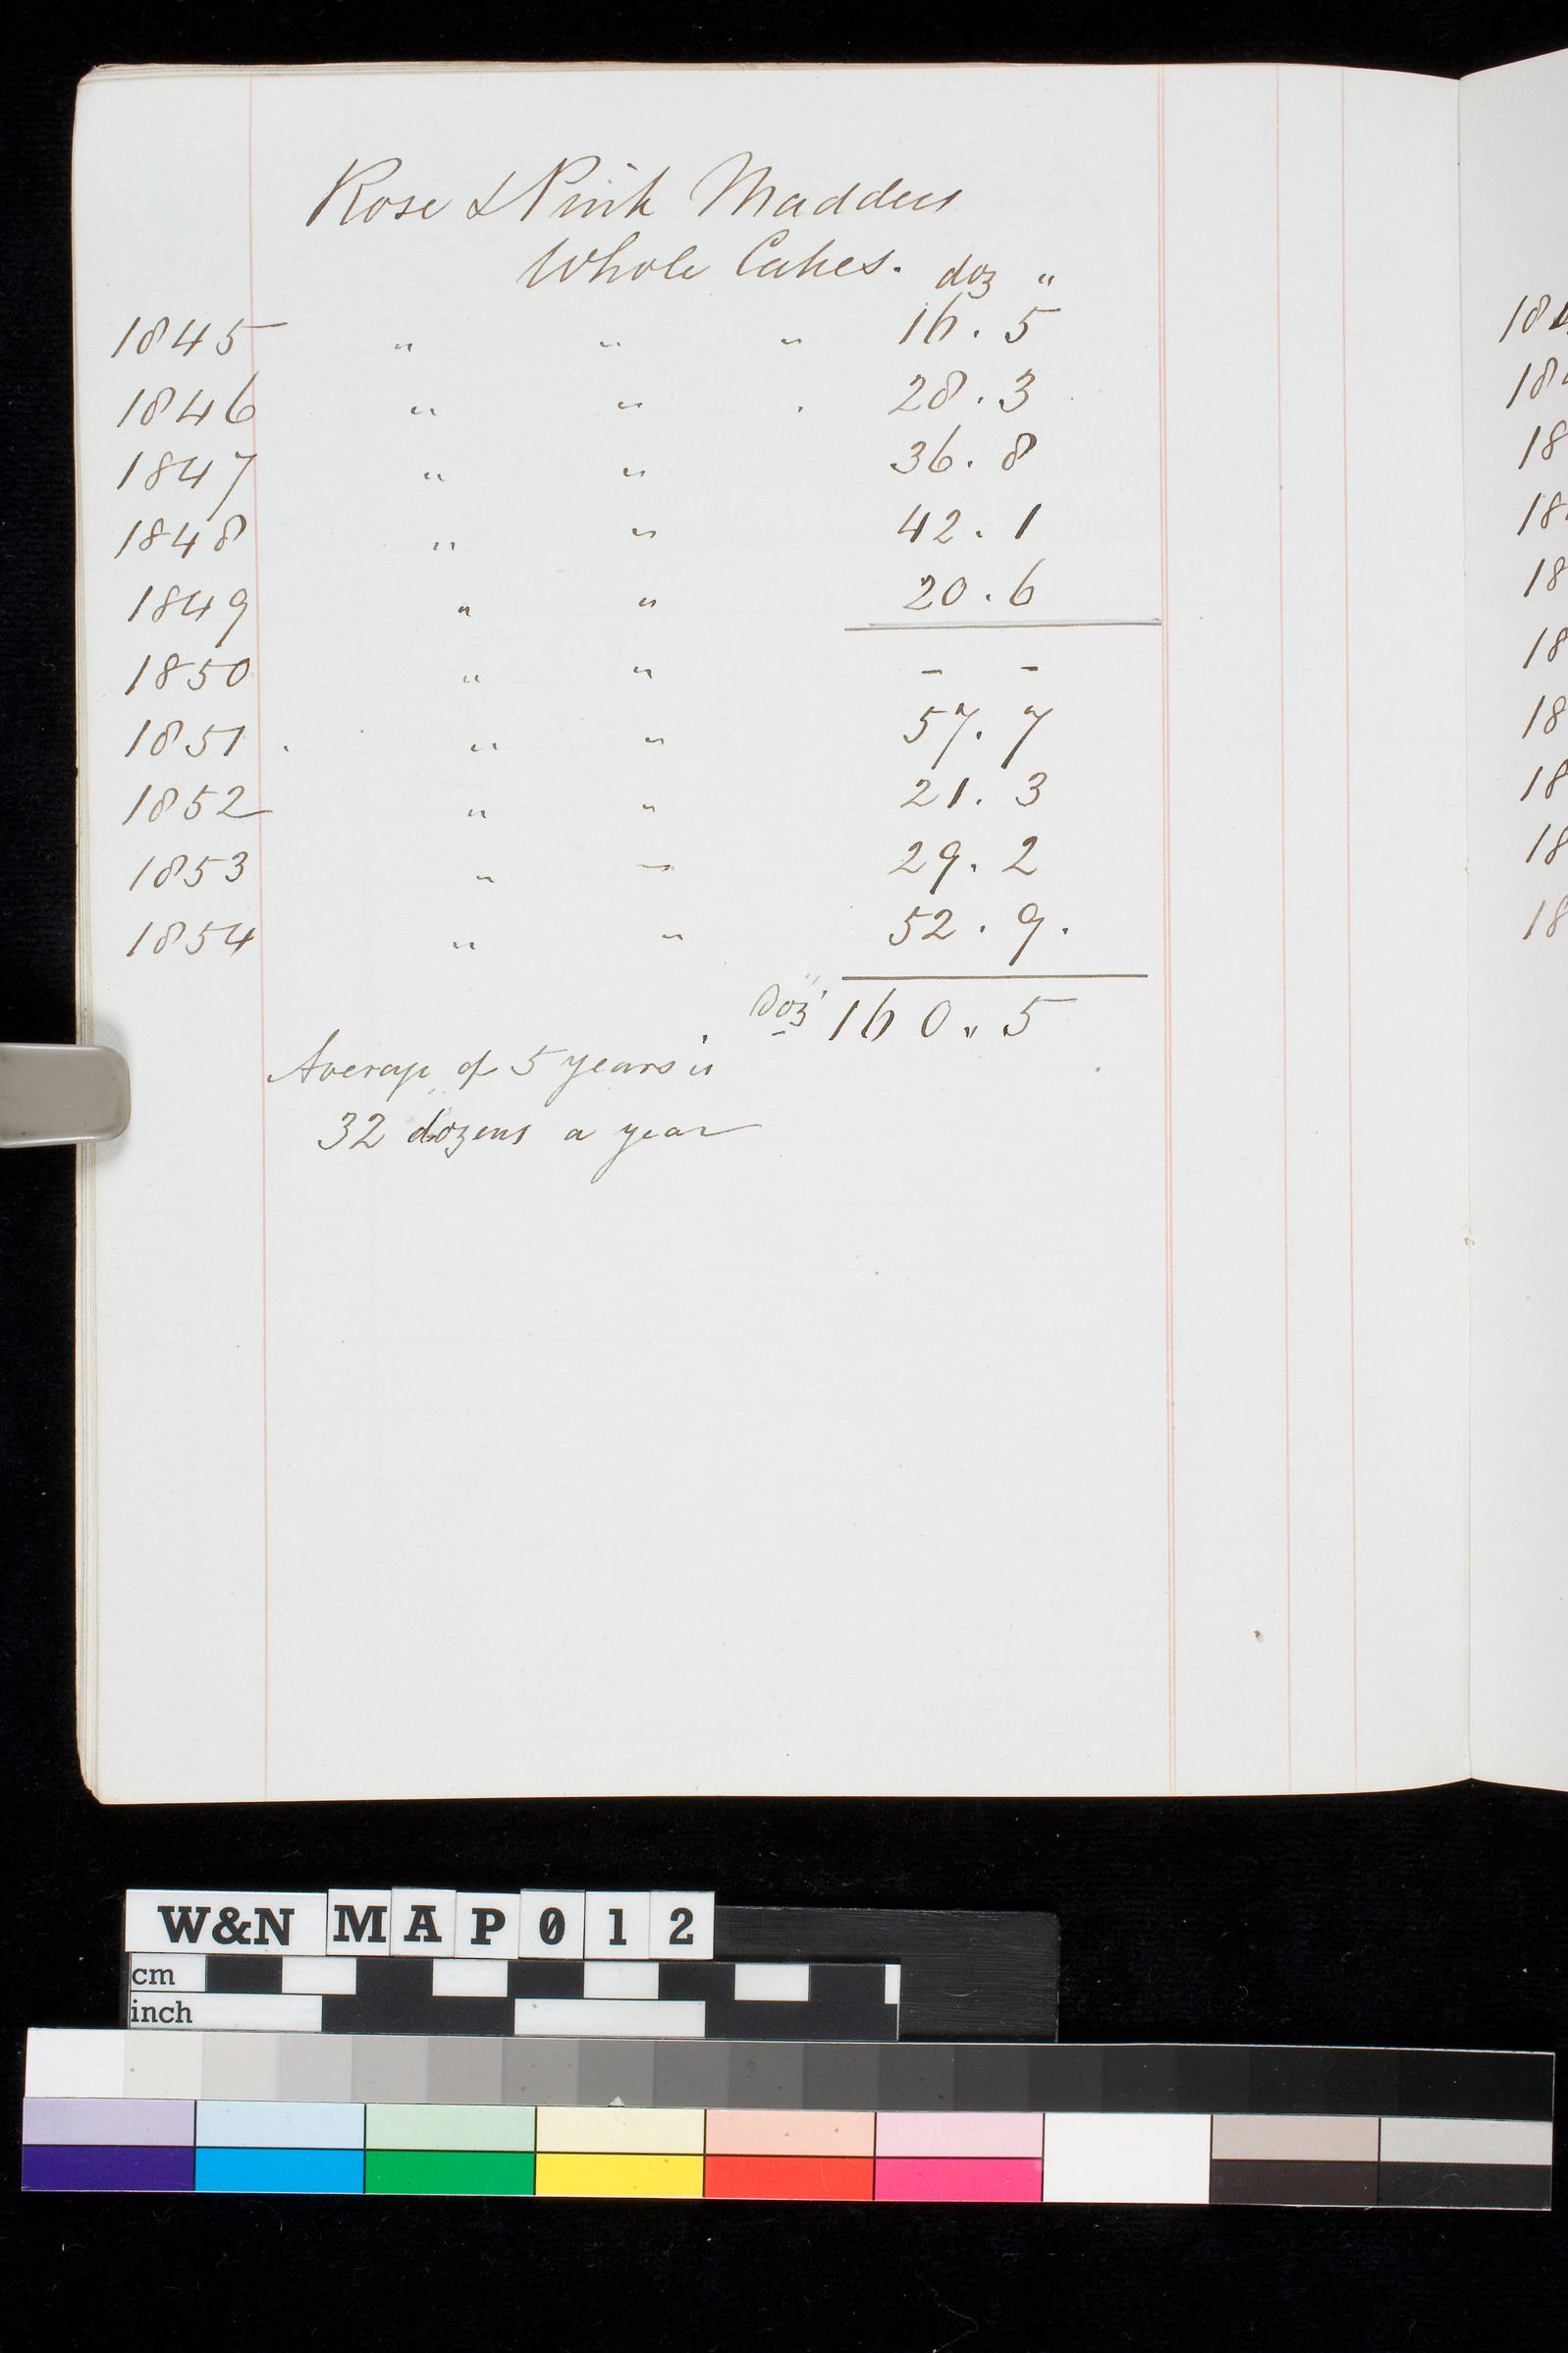 Rose & Pink Madders
Whole Cakes. doz "
1845 " " " 16. 5
1846 " " . 28. 3
1847 " " 36. 8
1848 " " 42. 1
1849 " " 20. 6
1850 " " - -
1851. " " 57. 7
1852 " " 21. 3
1853 " " 29. 2
1854 " " 52. 9.
Doz 160 " 5
Average of 5 years is
32 dozens a year
18
18
18
18
18
18
18
18
18
18
W&N MAP012
cm
inch